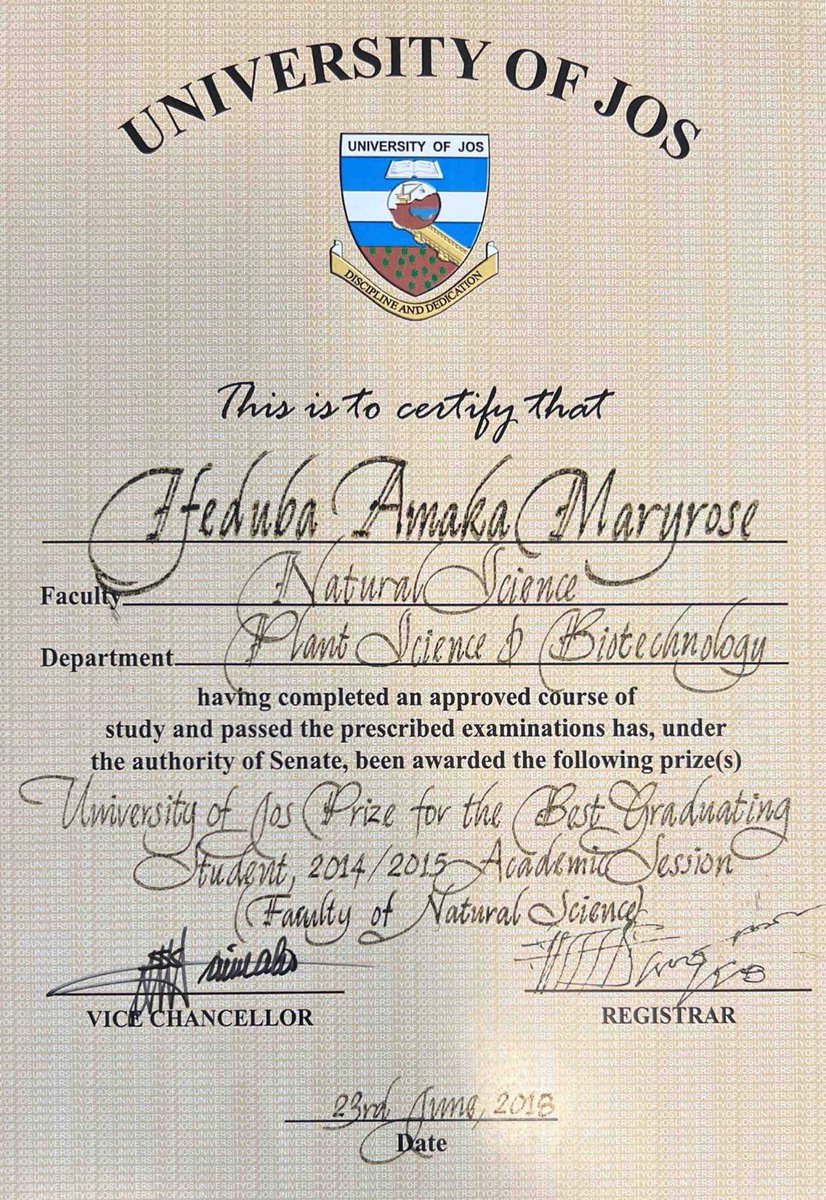 UNIVERSITY OF JOS
UNIVERSITY OF JOS
DISCIPLINE AND DEDICATION
This is to certify that
Ifeduba Amaka Maryrose
Faculty Natural Science
Department Plant Science & Biotechnology
having completed an approved course of
study and passed the prescribed examinations has, under
the authority of Senate, been awarded the following prize(s)
University of Jos Prize for the Best Graduating
Student, 2014/2015 Academic Session
(Faculty of Natural Science)
VICE CHANCELLOR
REGISTRAR
23rd June, 2018
Date